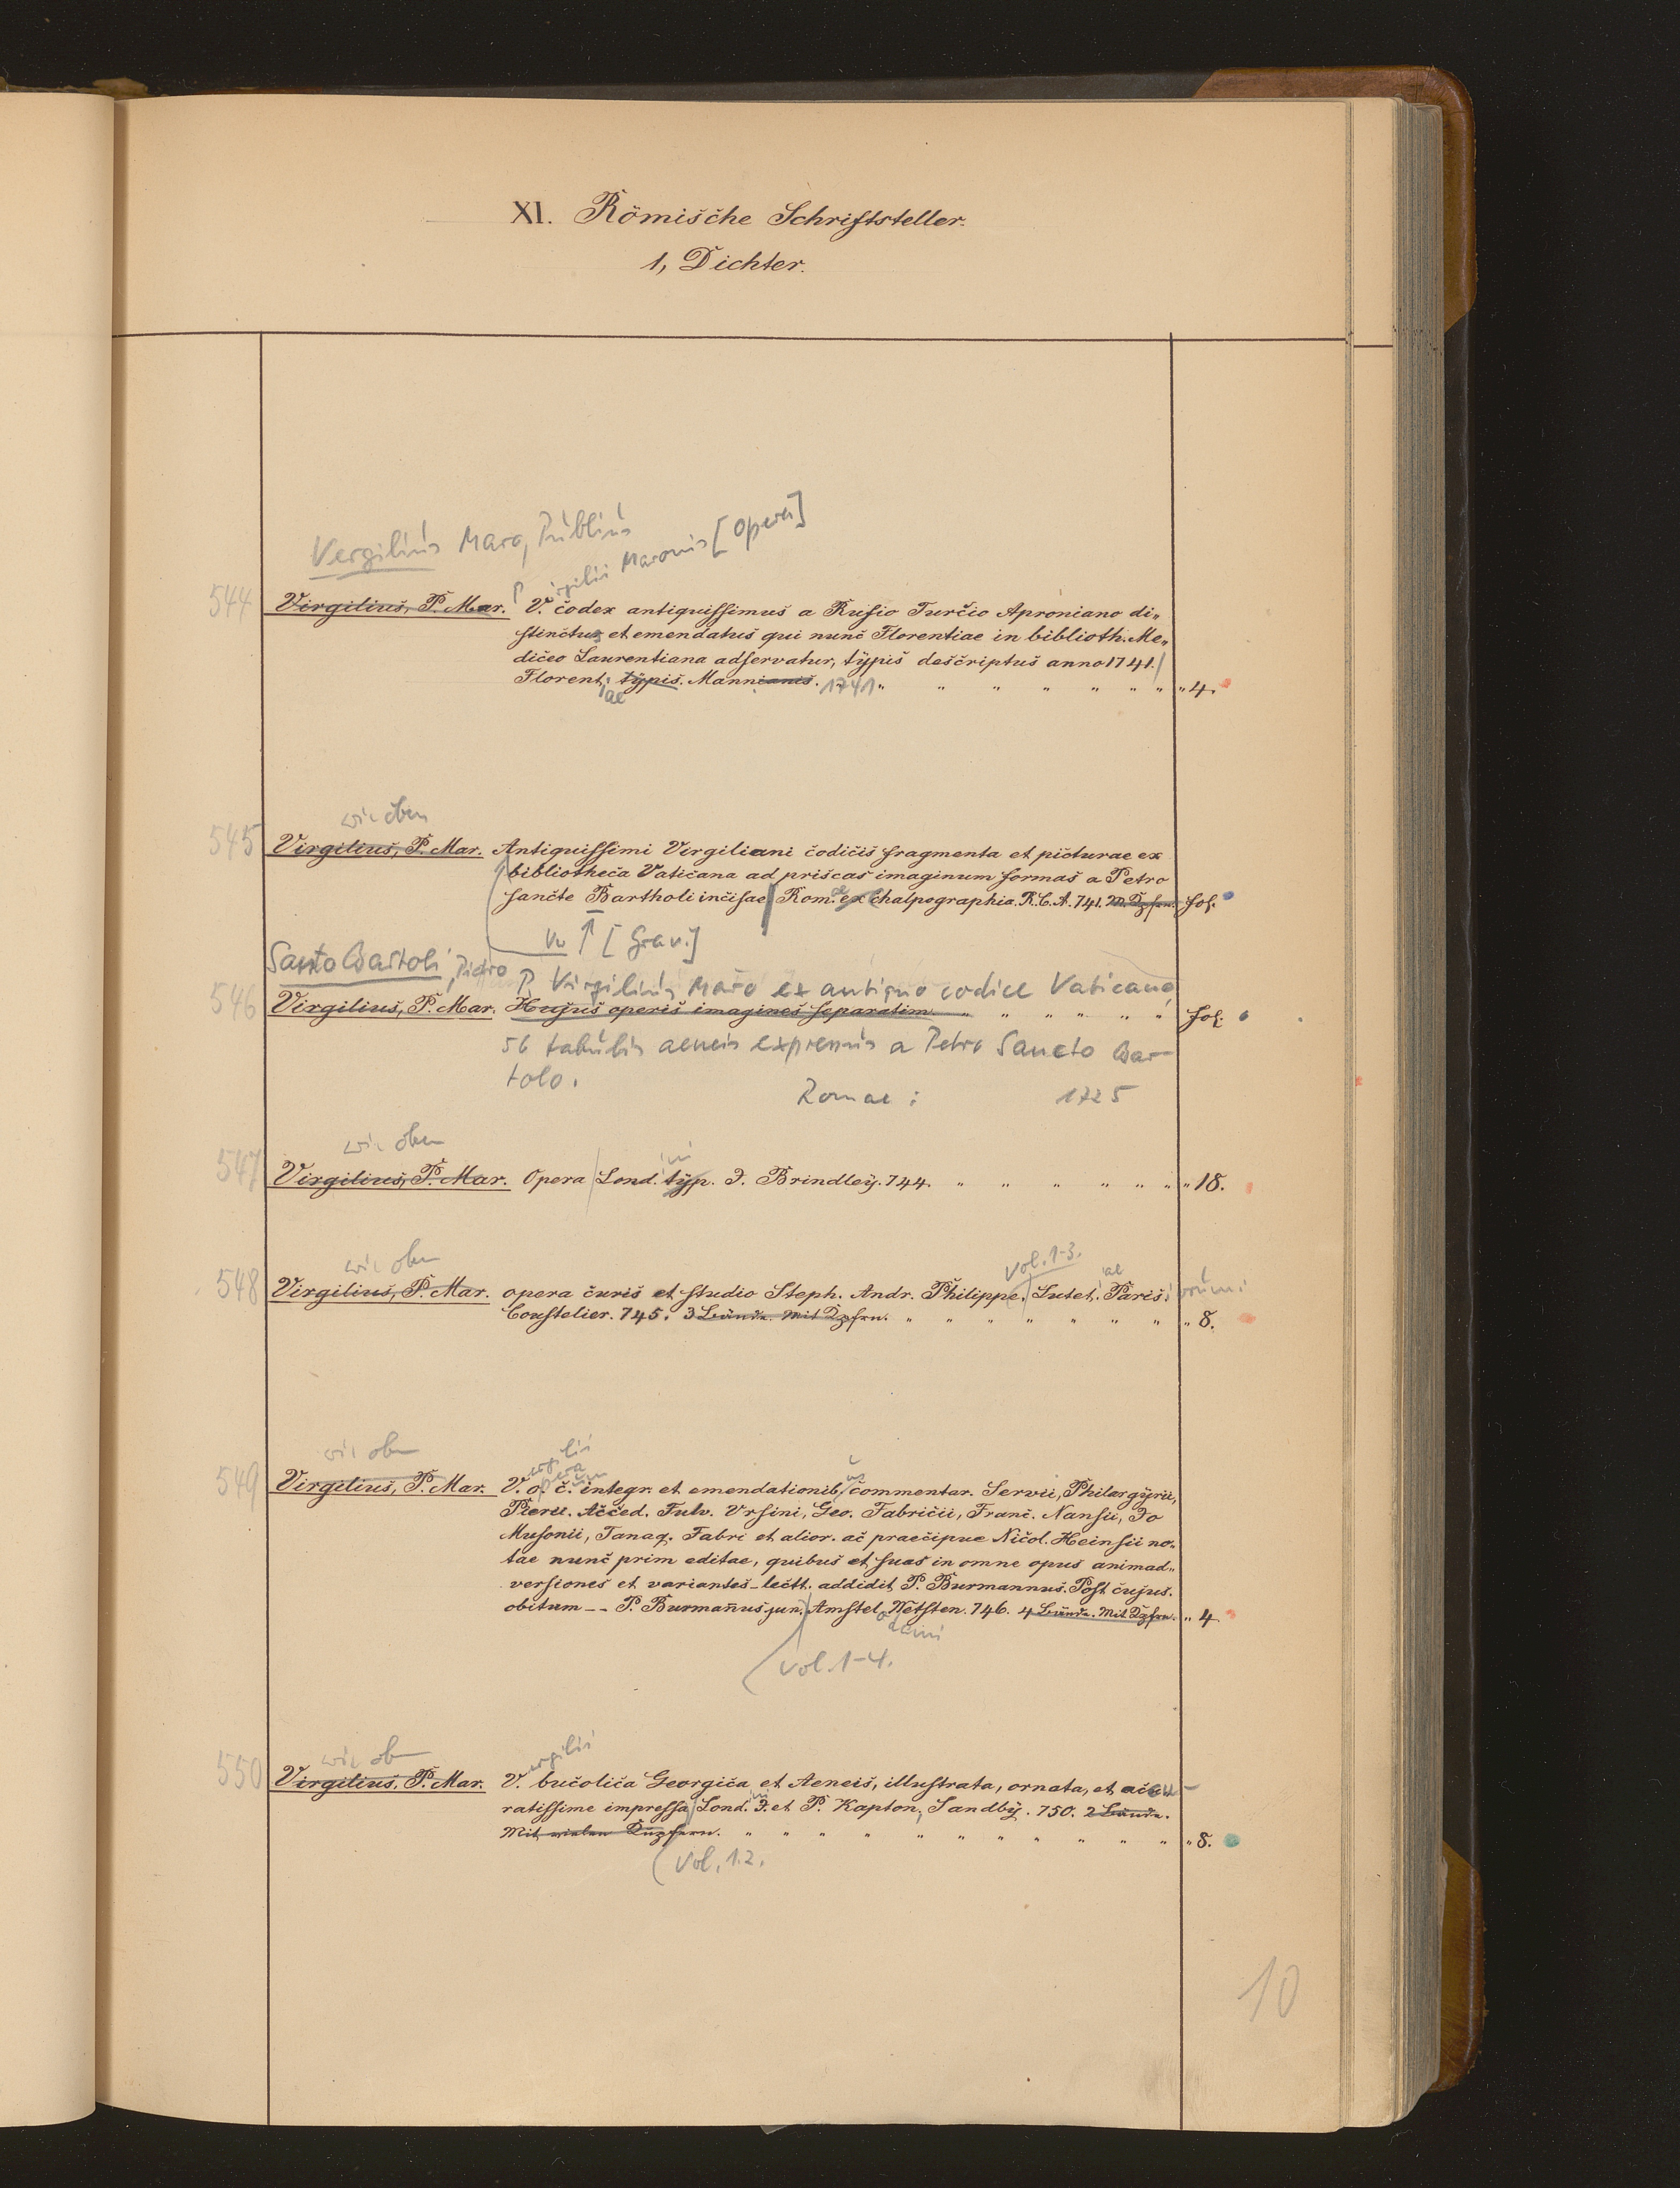 XI. Römische Schriftsteller.
1, Dichter.
Vergilius Maro, Publius
P irgilii Maronis [Opera]
544 Virgilius, P. Mar. V. codex antiquissimus a Rufio Turcio Aproniano di„
stinctus et emendatus qui nunc Florentiae in biblioth. Me„
diceo Laurentiana adservatur, typis descriptus anno 1741.
Florent. typis. Mannianis. 1741 " " " " " " " " 4.
ae
wie oben
545 Virgilius, P. Mar. Antiquissimi Virgiliani codicis fragmenta et picturae ex
bibliotheca Vaticana ad priscas imaginum formas a Petro
sancte Bartholi incisae Rom. ae ex Chalpographia. R. C. A. 741. M. Kpfrn. fol.
[Grav.]
Santo Bartoli, Pietro P. Virgilius Maro ex antiquo codice Vaticano
546 Virgilius, P. Mar. Hujus operis imagines separatim. " " " " " " fol.
56 tabulis aeneis expressis a Petro Sancto Bar-
tolo.
Romae: 1725
wie oben
547 Virgilius, P. Mar. Opera Lond. typ. J. Brindley. 744. " " " " " " " 18.
wie oben vol. 1-3.
548 Virgilius, P. Mar. opera curis et studio Steph. Andr. Philippe. Lutet. ae Paris. orum:
Coustelier. 745. 3 Bände. Mit Kpfrn. " " " " " " " " 8.
wie oben
549 Virgilius, P. Mar. V. o. c. integr. et emendationib. us commentar. Servii, Philargyrii,
Pierii. Acced. Fulv. Vrsini, Geo. Fabricii, Franc. Nansii, Jo
Musonii, Tanaq. Fabri et alior. ac praecipue Nicol. Heinsii no„
tae nunc prim editae, quibus et suas in omne opus animad„
versiones et variantes lectt. addidit P. Burmannus. Post cujus.
obitum -- P. Burmañus jun. Amstel. Wetsten. 746. 4 Bände. Mit Kpfrn. " 4
vol. 1-4.
wie oben ergilii
550 Virgilius, P. Mar. V. bucolica Georgica et Aeneis, illustrata, ornata, et accu-
ratissime impressa Lond. J. et P. Kapton, Sandby. 750. 2 Bände.
Mit vielen Kupfern. " " " " " " " " " " " 8.
Vol. 1.2.
10